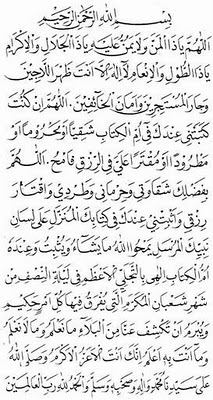 بِسْمِ اللهِ الرَّحْمٰنِ الرَّحِيْمِ
اَللّٰهُمَّ يَاذَا الْمَنِّ وَلَا يُمَنُّ عَلَيْهِ يَاذَا الْجَلَالِ وَالْاِكْرَامِ
يَاذَا الطَّوْلِ وَالْاِنْعَامِ لَآ اِلٰهَ اِلَّا اَنْتَ ظَهْرَ اللَّاجِيْنَ
وَجَارَ الْمُسْتَجِيْرِيْنَ وَاَمَانَ الْخَائِفِيْنَ. اَللّٰهُمَّ اِنْ كُنْتَ
كَتَبْتَنِيْ عِنْدَكَ فِيْ اُمِّ الْكِتَابِ شَقِيًّا اَوْ مَحْرُوْمًا اَوْ
مَطْرُوْدًا اَوْ مُقْتَرًّا عَلَيَّ فِي الرِّزْقِ فَامْحُ. اَللّٰهُمَّ
بِفَضْلِكَ شَقَاوَتِيْ وَحِرْمَانِيْ وَطَرْدِيْ وَاقْتَارَ
رِزْقِيْ وَاَثْبِتْنِيْ عِنْدَكَ فِيْ كِتَابِكَ الْمُنَزَّلِ عَلٰى لِسَانِ
نَبِيِّكَ الْمُرْسَلِ يَمْحُو اللهُ مَا يَشَاءُ وَيُثْبِتُ وَعِنْدَهُ
اُمُّ الْكِتَابِ اِلٰهِيْ بِالتَّجَلِّي الْاَعْظَمِ فِيْ لَيْلَةِ النِّصْفِ مِنْ
شَهْرِ شَعْبَانَ الْمُكَرَّمِ الَّتِيْ يُفْرَقُ فِيْهَا كُلُّ اَمْرٍ حَكِيْمٍ
وَيُبْرَمُ اَنْ تَكْشِفَ عَنَّا مِنَ الْبَلَاءِ مَا نَعْلَمُ وَمَا لَا نَعْلَمُ
وَمَا اَنْتَ بِهِ اَعْلَمُ اِنَّكَ اَنْتَ الْاَعَزُّ الْاَكْرَمُ وَصَلَّى اللهُ
عَلٰى سَيِّدِنَا مُحَمَّدٍ وَاٰلِهِ وَصَحْبِهِ وَسَلَّمَ وَالْحَمْدُ لِلّٰهِ رَبِّ الْعَالَمِيْنَ